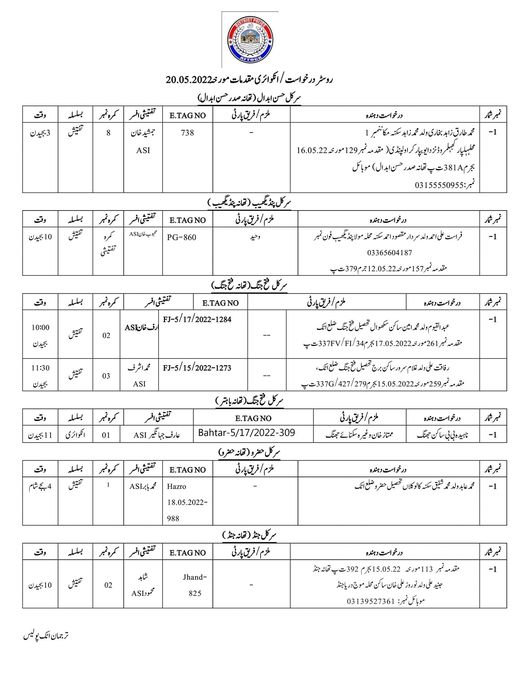 روسٹر درخواست / انکوائری مقدمات مورخہ 20.05.2022
سرکل حسن ابدال (تھانہ صدر حسن ابدال)
نمبر شمار درخواست دہندہ ملزم / فریق پارٹی E.TAG NO تفتیشی افسر کمرہ نمبر بسلسلہ وقت
1- محمد طارق زاہد بخاری ولد محمد زاہد سکنہ مکان نمبر 1 – 738 جمشید خان 8 تفتیش 3 بجے دن
( مقدمہ نمبر 129 مورخہ 16.05.22 ASI
بجرم 381A ت پ تھانہ صدر حسن ابدال ) موبائل
نمبر: 03155550955
سرکل پنڈیگھیب (تھانہ پنڈیگھیب)
نمبر شمار درخواست دہندہ ملزم / فریق پارٹی E.TAG NO تفتیشی افسر کمرہ نمبر بسلسلہ وقت
1- فراست علی احمد ولد سردار مقصود احمد سکنہ محلہ مولا پنڈیگھیب فون نمبر وحید PG-860 محبوب خان ASI کمرہ تفتیشی تفتیش 10 بجے دن
03365604187
مقدمہ نمبر 157 مورخہ 12.05.22 جرم 379 ت پ
سرکل فتح جنگ (تھانہ فتح جنگ)
نمبر شمار درخواست دہندہ ملزم / فریق پارٹی E.TAG NO تفتیشی افسر کمرہ نمبر بسلسلہ وقت
1- عبدالقیوم ولد محمد امین ساکن سکھوال تحصیل فتح جنگ ضلع اٹک -- FJ-5/17/2022-1284 عارف خان ASI 02 تفتیش 10:00 بجے دن
مقدمہ نمبر 261 مورخہ 17.05.2022 جرم 337FV/FI/34 ت پ
رفاقت علی ولد غلام سرور ساکن برج تحصیل فتح جنگ ضلع اٹک، -- FJ-5/15/2022-1273 محمد اشرف ASI 03 تفتیش 11:30 بجے دن
مقدمہ نمبر 259 مورخہ 15.05.2022 جرم 337G/427/279 ت پ
سرکل فتح جنگ (تھانہ باہتر)
نمبر شمار درخواست دہندہ ملزم / فریق پارٹی E.TAG NO تفتیشی افسر کمرہ نمبر بسلسلہ وقت
1- ناہیدہ بی بی ساکن جھنگ ممتاز خان وغیرہ سکنائے جھنگ Bahtar-5/17/2022-309 عارف جہانگیر ASI 01 انکوائری 11 بجے دن
سرکل حضرو (تھانہ حضرو)
نمبر شمار درخواست دہندہ ملزم / فریق پارٹی E.TAG NO تفتیشی افسر کمرہ نمبر بسلسلہ وقت
1- محمد عابد ولد محمد شفیق سکنہ کالو کلاں تحصیل حضرو ضلع اٹک – Hazro محمد بابر ASI 1 تفتیش 4 بجے شام
18.05.2022-
988
سرکل جنڈ (تھانہ جنڈ)
نمبر شمار درخواست دہندہ ملزم / فریق پارٹی E.TAG NO تفتیشی افسر کمرہ نمبر بسلسلہ وقت
1- مقدمہ نمبر 113 مورخہ 15.05.22 جرم 392 ت پ تھانہ جنڈ – Jhand- شاہد 02 تفتیش 10 بجے دن
جنید علی ولد نوروز علی خان ساکن محلہ موج دریا جنڈ 825 محمود ASI
موبائل نمبر: 03139527361
ترجمان اٹک پولیس